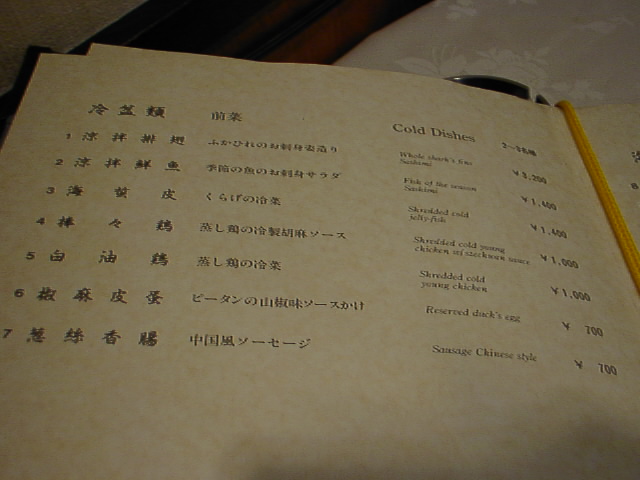 冷盆類 前菜 Cold Dishes 2〜3名様
1 涼拌排翅 ふかひれのお刺身姿造り Whole shark's fins Sashimi ¥3,200
2 涼拌鮮魚 季節の魚のお刺身サラダ Fish of the season Sashimi ¥1,400
3 海蜇皮 くらげの冷菜 Shredded cold jelly-fish ¥1,400
4 棒々鶏 蒸し鶏の冷製胡麻ソース Shredded cold young chicken szechwan sauce ¥1,000
5 白油鶏 蒸し鶏の冷菜 Shredded cold young chicken ¥1,000
6 椒麻皮蛋 ピータンの山椒味ソースかけ Reserved duck's egg ¥ 700
7 葱絲香腸 中国風ソーセージ Sausage Chinese style ¥ 700